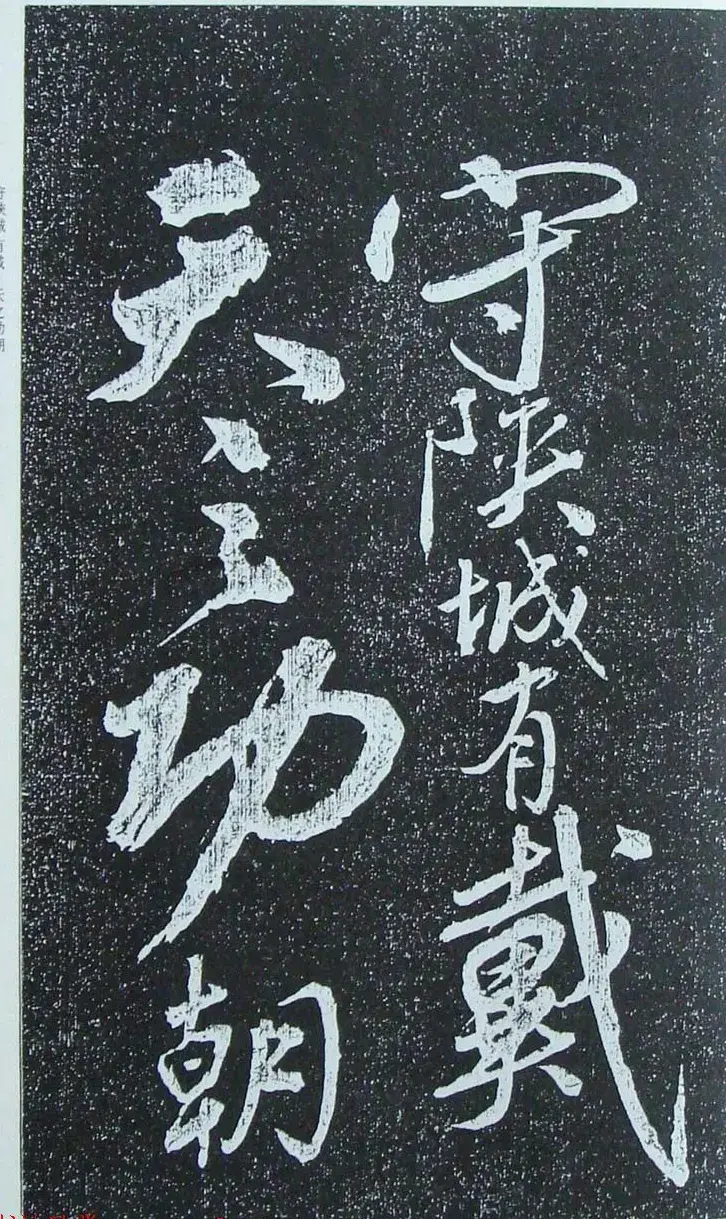 守陕城有戴
天之功朝
守陕城有戴 天之功朝